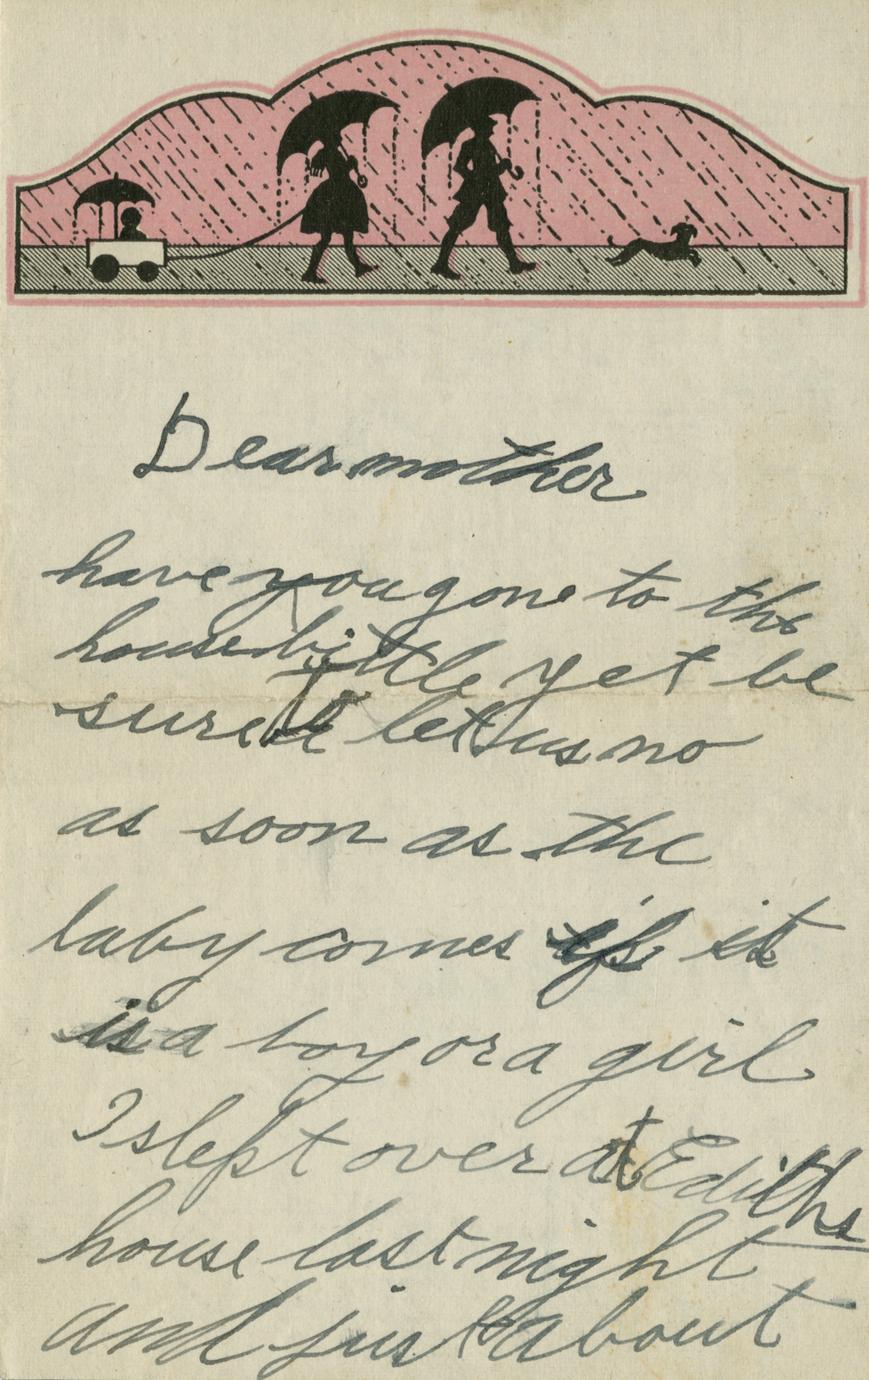 Dear mother
have you gone to the
housebittle yet be
sure let us no
as soon as the
baby comes if it
is a boy or a girl
I slept over at Ediths
house last night
and just about